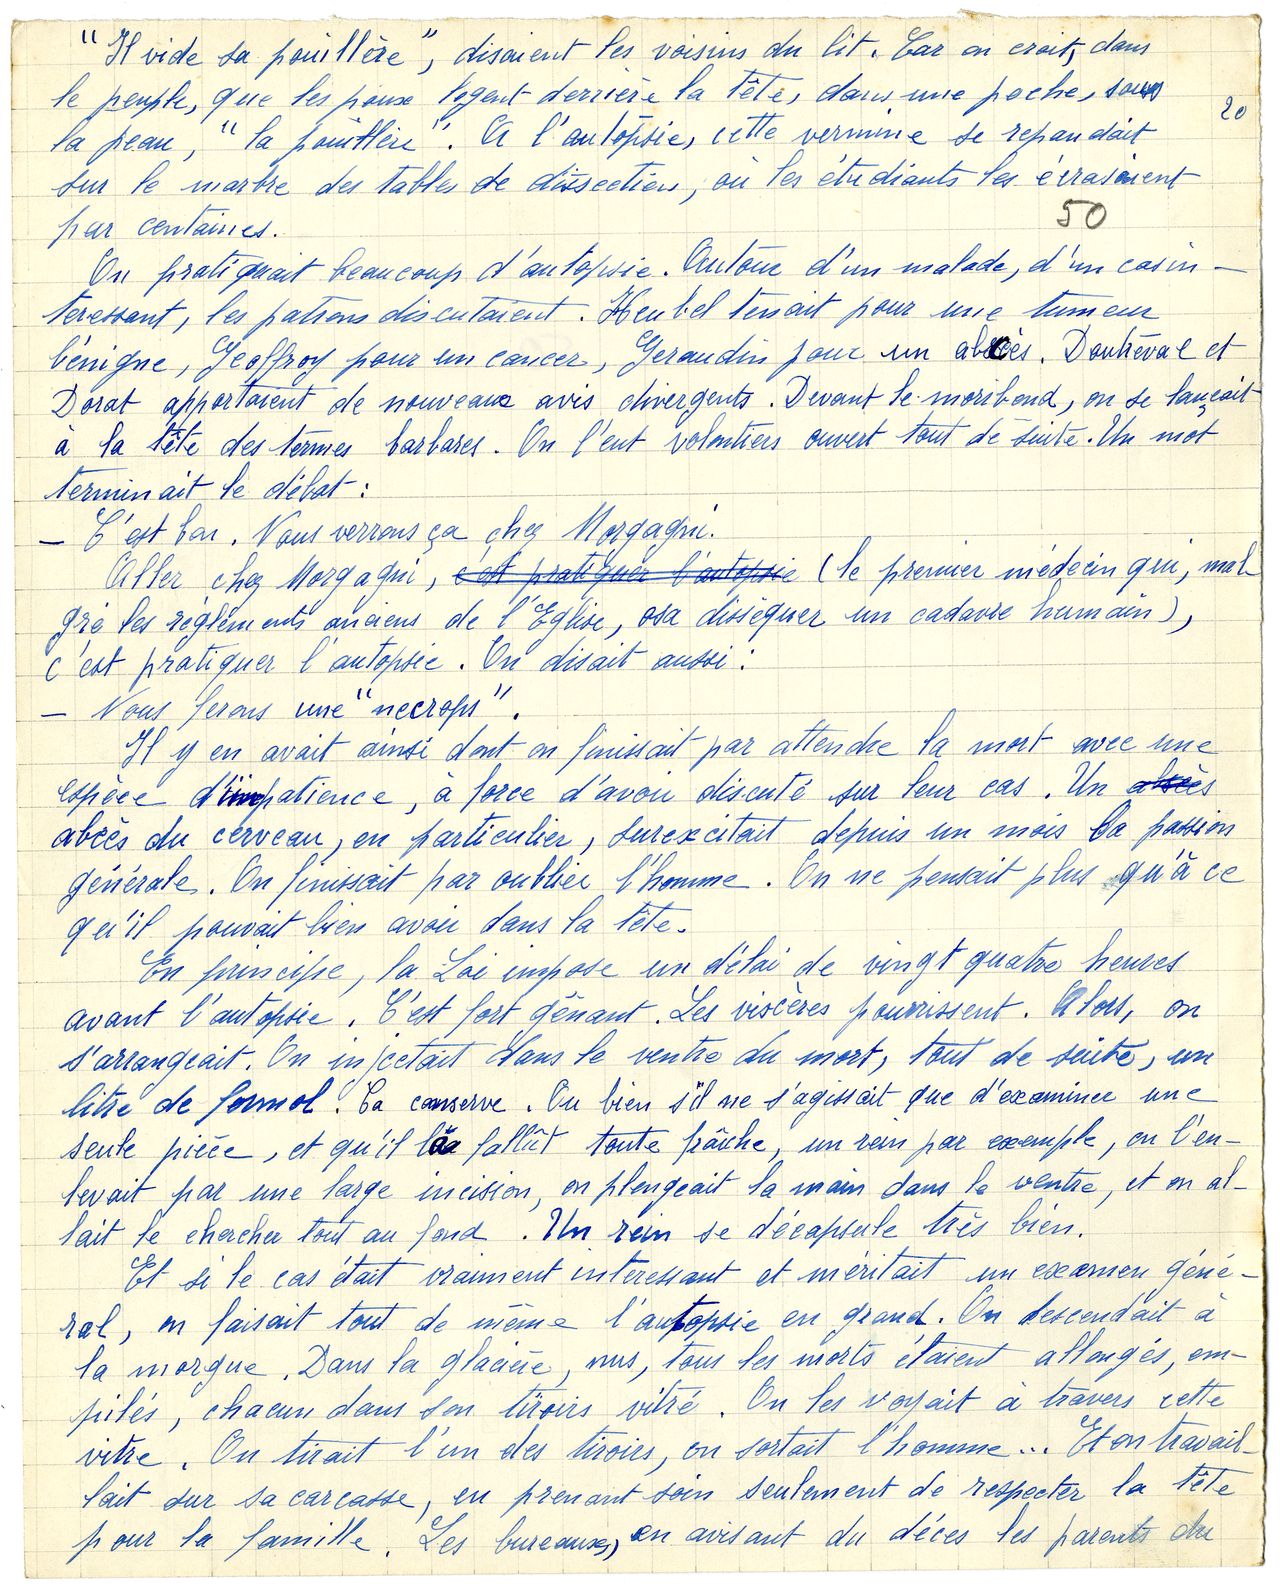 "Il vide sa pouillère", disaient les voisins du lit. Car on croit, dans
le peuple, que les poux logent derrière la tête, dans une poche, sous
20
la peau, "la pouillère". A l'autopsie, cette vermine se repandait
sur le marbre des tables de dissection, où les étudiants les écrasaient
50
par centaines.
On pratiquait beaucoup d'autopsie. Autour d'un malade, d'un cas in-
teressant, les patrons discutaient. Heubel tenait pour une tumeur
bénigne, Geoffroy pour un cancer, Geraudin pour un abcès. Doutreval et
Dorat apportaient de nouveaux avis divergents. Devant le moribond, on se lançait
à la tête des termes barbares. On l'eut volontiers ouvert tout de suite. Un mot
terminait le débat :
- C'est bon. Nous verrons ça chez Morgagni.
Aller chez Morgagni, c'est pratiquer l'autopsie (le premier médecin qui, mal-
gré les règlements anciens de l'Eglise, osa disséquer un cadavre humain),
c'est pratiquer l'autopsie. On disait aussi :
- Nous ferons une "necrops".
Il y en avait ainsi dont on finissait par attendre la mort avec une
espèce d'impatience, à force d'avoir discuté sur leur cas. Un absès
abcès du cerveau, en particulier, surexcitait depuis un mois la passion
générale. On finissait par oublier l'homme. On ne pensait plus qu'à ce
qu'il pouvait bien avoir dans la tête.
En principe, la Loi impose un délai de vingt quatre heures
avant l'autopsie. C'est fort gênant. Les viscères pourrissent. Alors, on
s'arrangeait. On injectait dans le ventre du mort, tout de suite, un
litre de formol. Ca conserve. Ou bien s'il ne s'agissait que d'examiner une
seule pièce, et qu'il la fallût toute fraîche, un rein par exemple, on l'en-
levait par une large incision, on plongeait la main dans le ventre, et on al-
lait le chercher tout au fond. Un rein se décapsule très bien.
Et si le cas était vraiment intéressant et méritait un examen géné-
ral, on faisait tout de même l'autopsie en grand. On descendait à
la morgue. Dans la glacière, nus, tous les morts étaient allongés, em-
pilés, chacun dans son tiroirs vitré. On les voyait à travers cette
vitre. On tirait l'un des tiroirs, on sortait l'homme... Et on travail-
lait sur sa carcasse, en prenant soin seulement de respecter la tête
pour la famille. Les bureaux, en avisant du décès les parents du